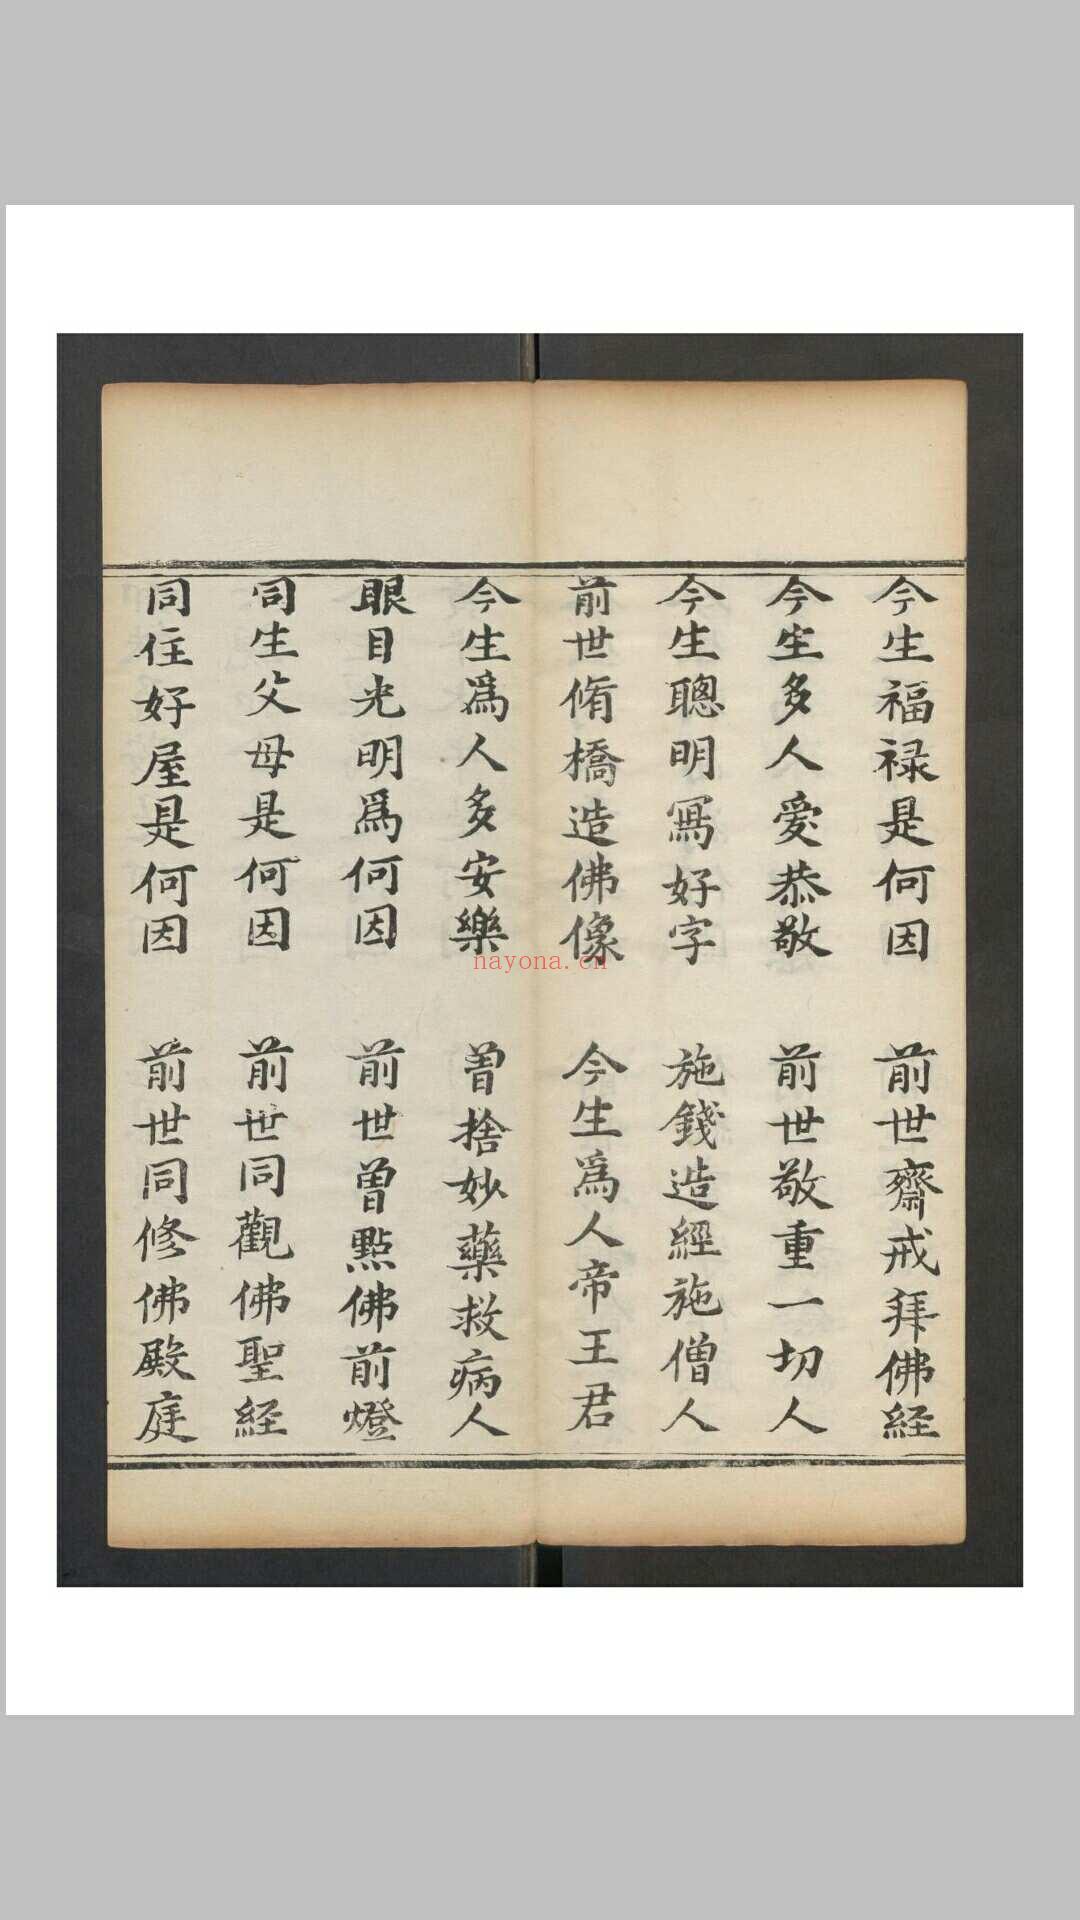 今生福禄是何因 前世齋戒拜佛経
今生多人愛恭敬 前世敬重一切人
今生聰明寫好字 施錢造經施僧人
前世脩橋造佛像 今生爲人帝王君
今生爲人多安樂 曽捨妙藥救病人
眼目光明爲何因 前世曽點佛前燈
同生父母是何因 前世同觀佛聖経
同住好屋是何因 前世同修佛殿庭
nayona.cn